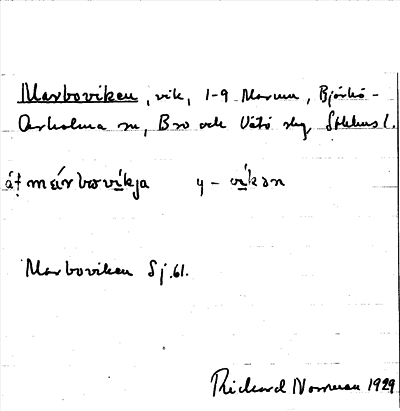 Marboviken, vik, 1-9 Marum, Björkö-
Arholma sn, Bro och Vätö slg Sthlms l.
åt márbovikja y - víkən
Marboviken Sj. 61.
Rickard Norrman 1929